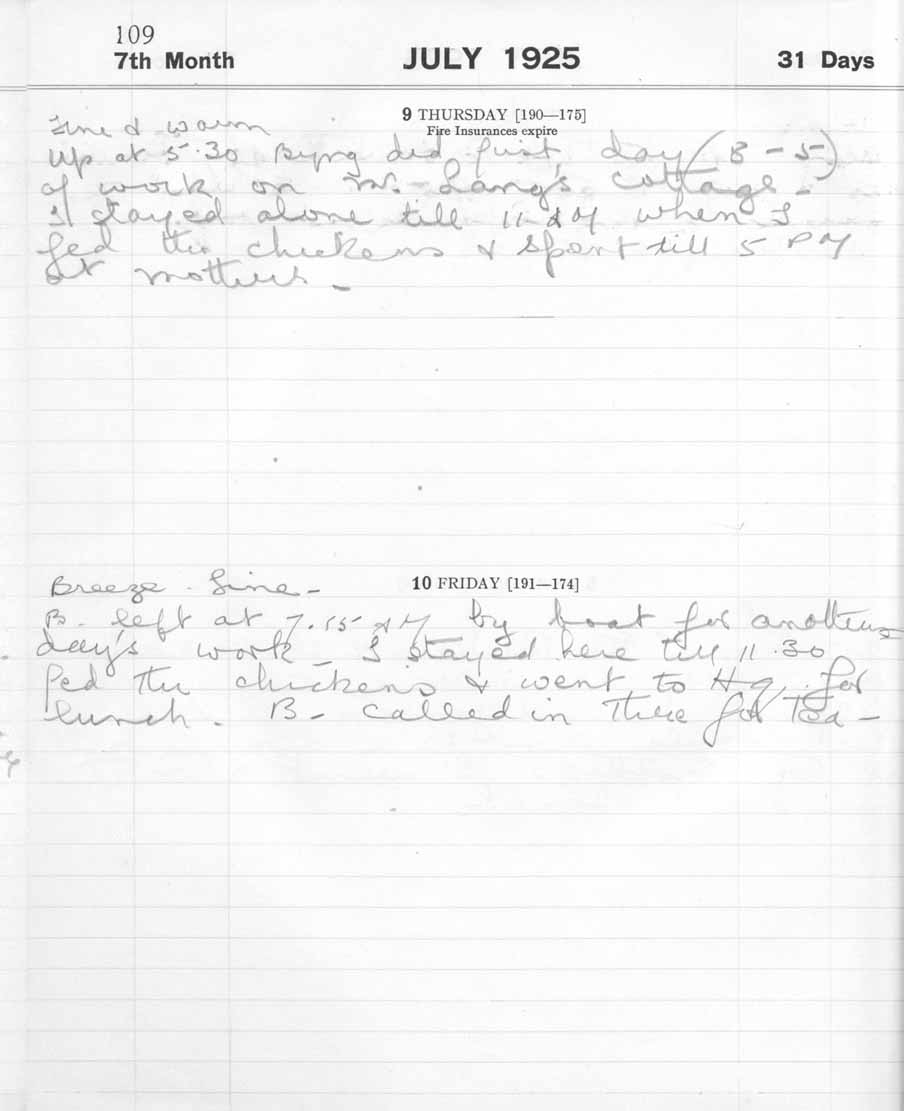 109
7th Month JULY 1925 31 Days
9 THURSDAY [190—175]
Fire Insurances expire
Fine & warm
Up at 5.30 Byng did first day (8 - 5)
of work on Mr. Lang's cottage -
I stayed alone till 11 AM when I
fed the chickens & spent till 5 PM
at mothers -
10 FRIDAY [191—174]
Breeze. Fine -
B. left at 7.15 AM by boat for another
day's work - I stayed here till 11.30
Fed the chickens & went to Hq. for
lunch. B - called in there for tea -